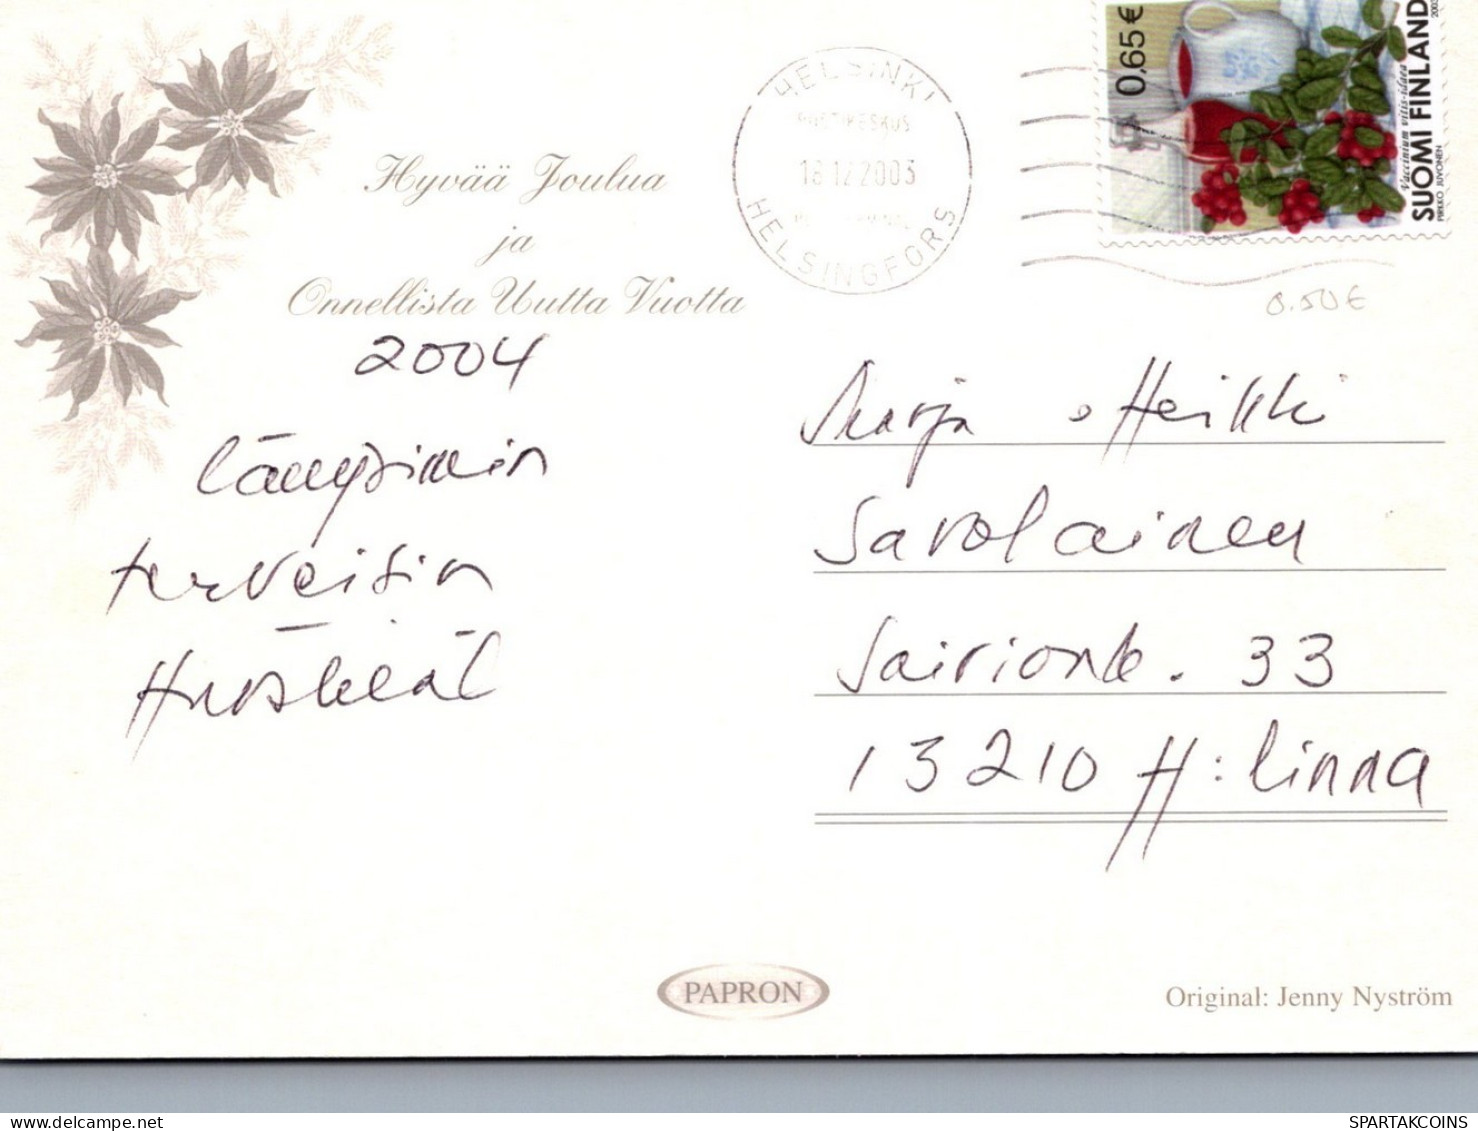 Hyvää Joulua
ja
Onnellista Uutta Vuotta
2004
lämpimin
terveisin
HELSINKI
POSTIKESKUS
18.12.2003
HELSINGFORS
0,65 €
Vaccinium vitis-idaea
SUOMI FINLAND
PIRKKO JUVONEN
2003
0.50€
Marja Heikki
Savolainen
Sairionk. 33
13210 H:linna
PAPRON
Original: Jenny Nyström
SPARTAKCOINS.COM